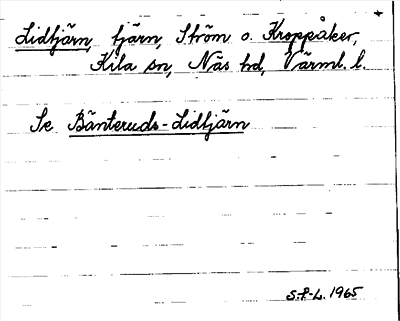 Lidtjärn, tjärn, Ström o. Kroppåker,
Kila sn, Näs hd, Värml. l.
Se Bänteruds-Lidtjärn
S.F-L. 1965